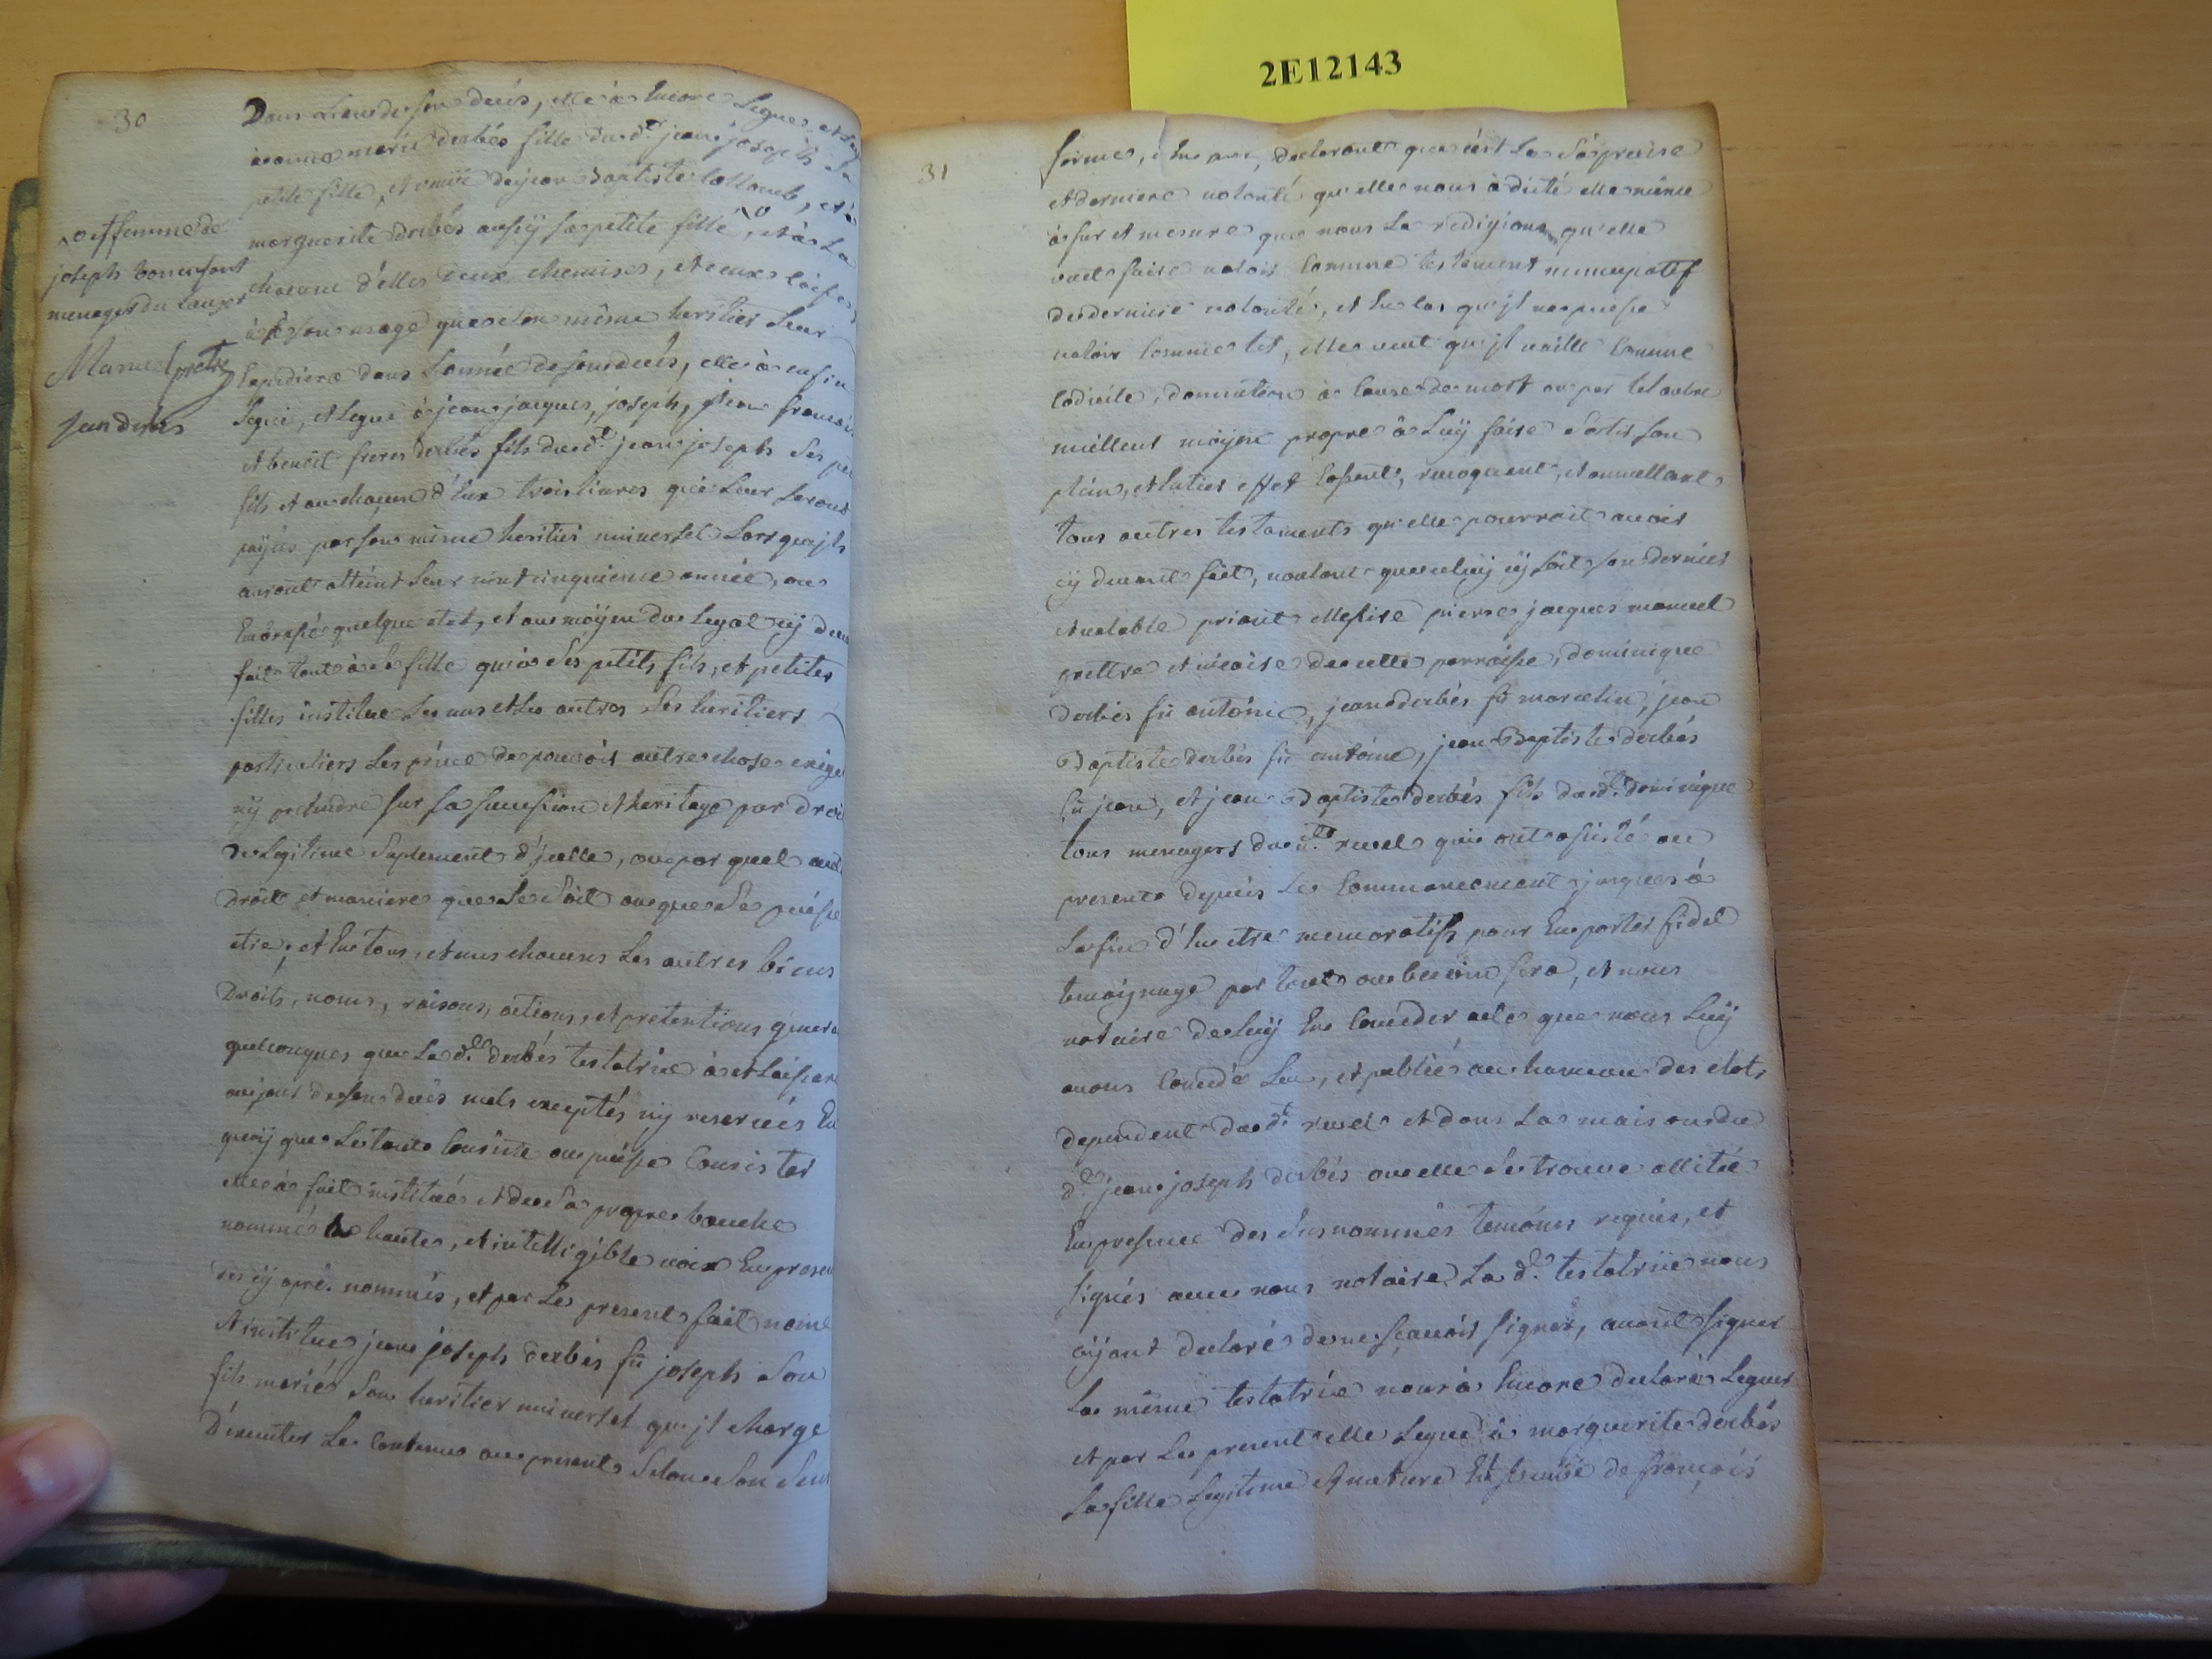 2E12143
30
Dans L'an de son decés, elle à Encore Legué, et
à anne marie derbés fille du d.t jean joseph Sa
petite fille, et veuve de jean Baptiste, et à
marguerite derbés aussÿ sa petite fille, et à La
chacune d'elles deux chemises, et deux coiffes
à son usage que son même heritier Leur
Expediera dans L'année de son decés, elle à enfin
Legué, et Legue à jean jacques, joseph, jean françois
et benoit freres derbés fils du d.t jean joseph ses pe
fils et au chacun d'Eux trois livres qui Leur seront
païés par son même heritier universel Lors qu'jls
auront atteint Leur vint cinquieme année, ou
Embrassé quelque etat, et au moÿen du Legat cÿ deu
fait tant à sa fille qui à ses petits fils, et petites
filles institue Les uns et Les autres ses heritiers
particuliers Les prive de pouvoir autre chose exiger
nÿ pretendre sur sa succession et heritage par droit
de Legitime suplement d'jcelle, ou par quel aut
Droit et maniere que se soit ou que se puisse
etre, et En tous, et uns chacuns Les autres biens
Droits, noms, raisons, actions, et pretentions genera
quelconques que La d.te derbés testatrice à et Laissera
au jour de son decés nuls exceptés nÿ reservés En
quoÿ que Le tout Consiste ou puisse Consister
elle à fait institué et de sa propre bouche
nommé à haute, et intelligible voix En presen
ces cÿ apré. nommés, et par Le present fait nome
et institue jean joseph derbés fû joseph son
fils marié son heritier universel qu'jl charge
D'executer Le Contenu au present selon son sens
et femme de
joseph bonenfant
menager du Lauzet
Manuel prêtre
jean derbés
31
forme, et teneur, declarant que c'est La Sa precise
et derniere volonté qu'elle nous à dicté elle même
à fur et mesure que nous La redigions qu'elle
veut faire valoir Comme testament nuncupatif
de derniere volonté, et En Cas qu'jl ne puisse
valoir Comme tel, elle veut qu'jl vaille Comme
Codicile, donnation à Cause de mort ou par tel autre
meilleur moÿen propre à Luÿ faire Sortir son
plein, et Entier effet Cassant, revoquant, et annullant
tous autres testaments qu'elle pourroit avoir
cÿ devant fait, voulant que celuÿ cÿ soit son dernier
et valable priant Messire pierre jacques manuel
prettre et vicaire de cette parroisse, dominique
derbés fû antoine, jean derbés fû marcelin, jean
Baptiste derbés fû antoine, jean Baptiste derbés
fû jean, et jean Baptiste derbés fils du d.t dominique
tous menagers du d.t revel qui ont assisté au
present depuis Le Commancement jusques à
La fin d'En etre memoratifs pour En porter fidel
temoignage par tout ou besoin sera, et nous
notaire de Luÿ En Conceder acte que nous Luÿ
avons Concedé Leu, et publié au hameau des clots
dependent du d.t revel et dans La maison du
d.t jean joseph derbés ou elle se trouve allitée
En presence des susnommés temoins requis, et
signés avec nous notaire La d.te testatrice nous
aÿant declaré de ne sçavoir signer, avant signer
La même testatrice nous à Encore declaré Leguer
et par Le present elle Legue à marguerite derbés
sa fille Legitime et nature Et femme de françois